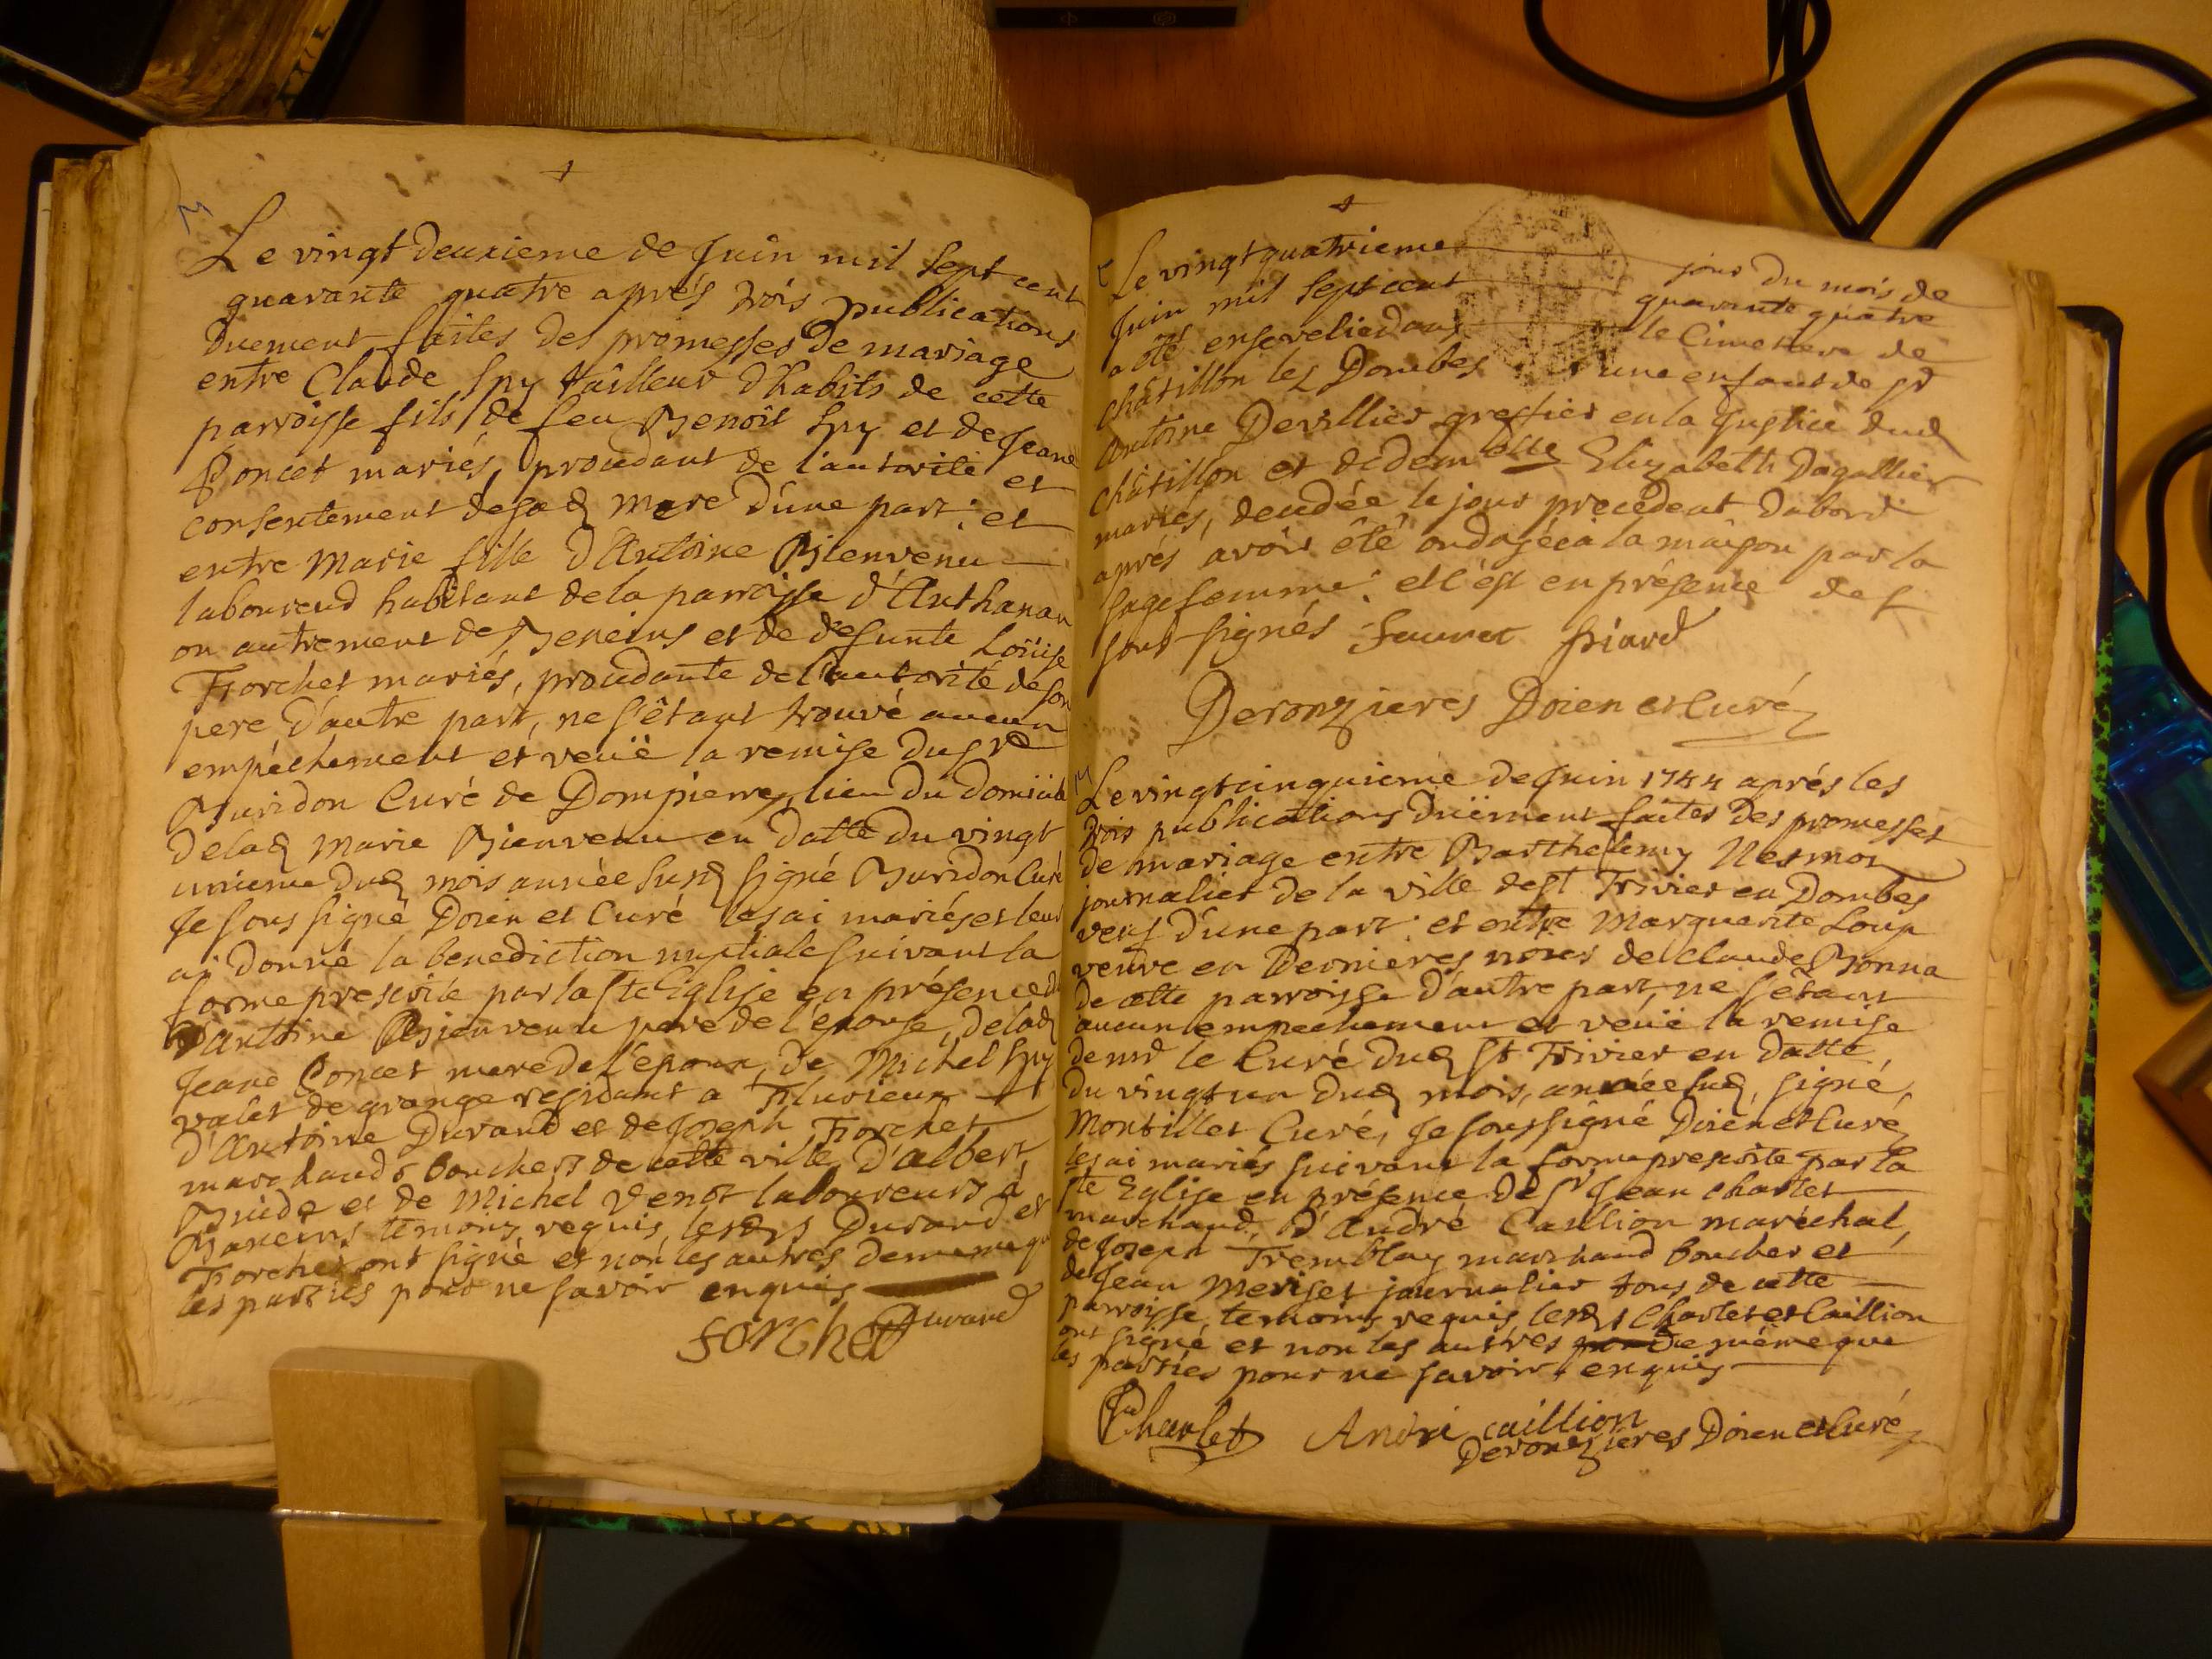 Le vingt deuxieme de Juin mil sept cent
quarante quatre aprés trois publications
duement faites des promesses de mariage
entre Claude Spy tailleur d'habits de cette
parroisse fils de feu Benoit Spy et de Jeane
Poncet mariés, procedant de l'autorité et
consentement de sad mere d'une part: et
entre Marie fille d'Antoine Bienvenu
laboureur habitant de la parroisse d'Anthanan
ou autrement de Beneins et de defunte Loüise
Forchet mariés, procedante de l'autorité de son
pere d'autre part, ne s'êtant trouvé aucun
empéchement et veüe la remise du sr
Buridon Curé de Dompierre, lieu du domicile
de lad Marie Bienvenu en datte du vingt
unieme dud mois année susd signé Buridon Curé
Je sous signé Doien et Curé les ai mariés et leur
ai donné la benediction nuptiale suivant la
forme prescrite par la Ste Eglise en présence de
d'antoine Bienvenu pere de l'epouse, de lad
Jeane Poncet mere de l'epoux, de Michel Spy
valet de grange residant a Flurieux et
d'Antoine Durand et de Joseph Forchet
marchands bouchers de cette ville, d'albert
et de Michel Venot laboureurs à
Baneins temoins requis, lesds Durand et
Forchet ont signé et non les autres de meme que
les parties pour ne savoir enquis
Durand
forchet
Le vingt quatrieme jour du mois de
Juin mil sept cent quarante quatre
a été ensevelie dans le Cimetiere de
châtillon les Dombes une enfant de sr
Antoine Devillier greffier en la Justice dud
châtillon et de dem.elle Elizabeth Dagallier
mariés, decedée le jour precedent d'abord
aprés avoir été ondoyée à la maison par la
sage femme: et c'est en présence des
sous signés. Sauvet friard
Deronzieres Doien et Curé
Le vingt cinquieme de Juin 1744 aprés les
trois publications duëment faites des promesses
de mariage entre Barthelemy Nesmoz
journalier de la ville de St Trivier en Dombes
veuf d'une part: et entre Marguerite Loup
veuve en dernieres noces de Claude Bonna
de cette parroisse d'autre part, ne s'êtant
aucun empechement et veüe la remise
de mr le Curé dud St Trivier en datte,
du vingt un dud mois, année sud, signé,
Montillet Curé, Je sous signé Doien et Curé
les ai mariés suivant la forme prescrite par la
Ste Eglise en présence de Sr Jean Charlet
marchand, d'André Caillion maréchal,
de Joseph Tremblay marchand boucher et
de Jean Meriset journalier tous de cette
parroisse, temoins requis, lesds Charlet et Caillion
ont signé et non les autres de même que
les parties pour ne savoir enquis
Charlet André caillion
Deronzieres Doien et Curé